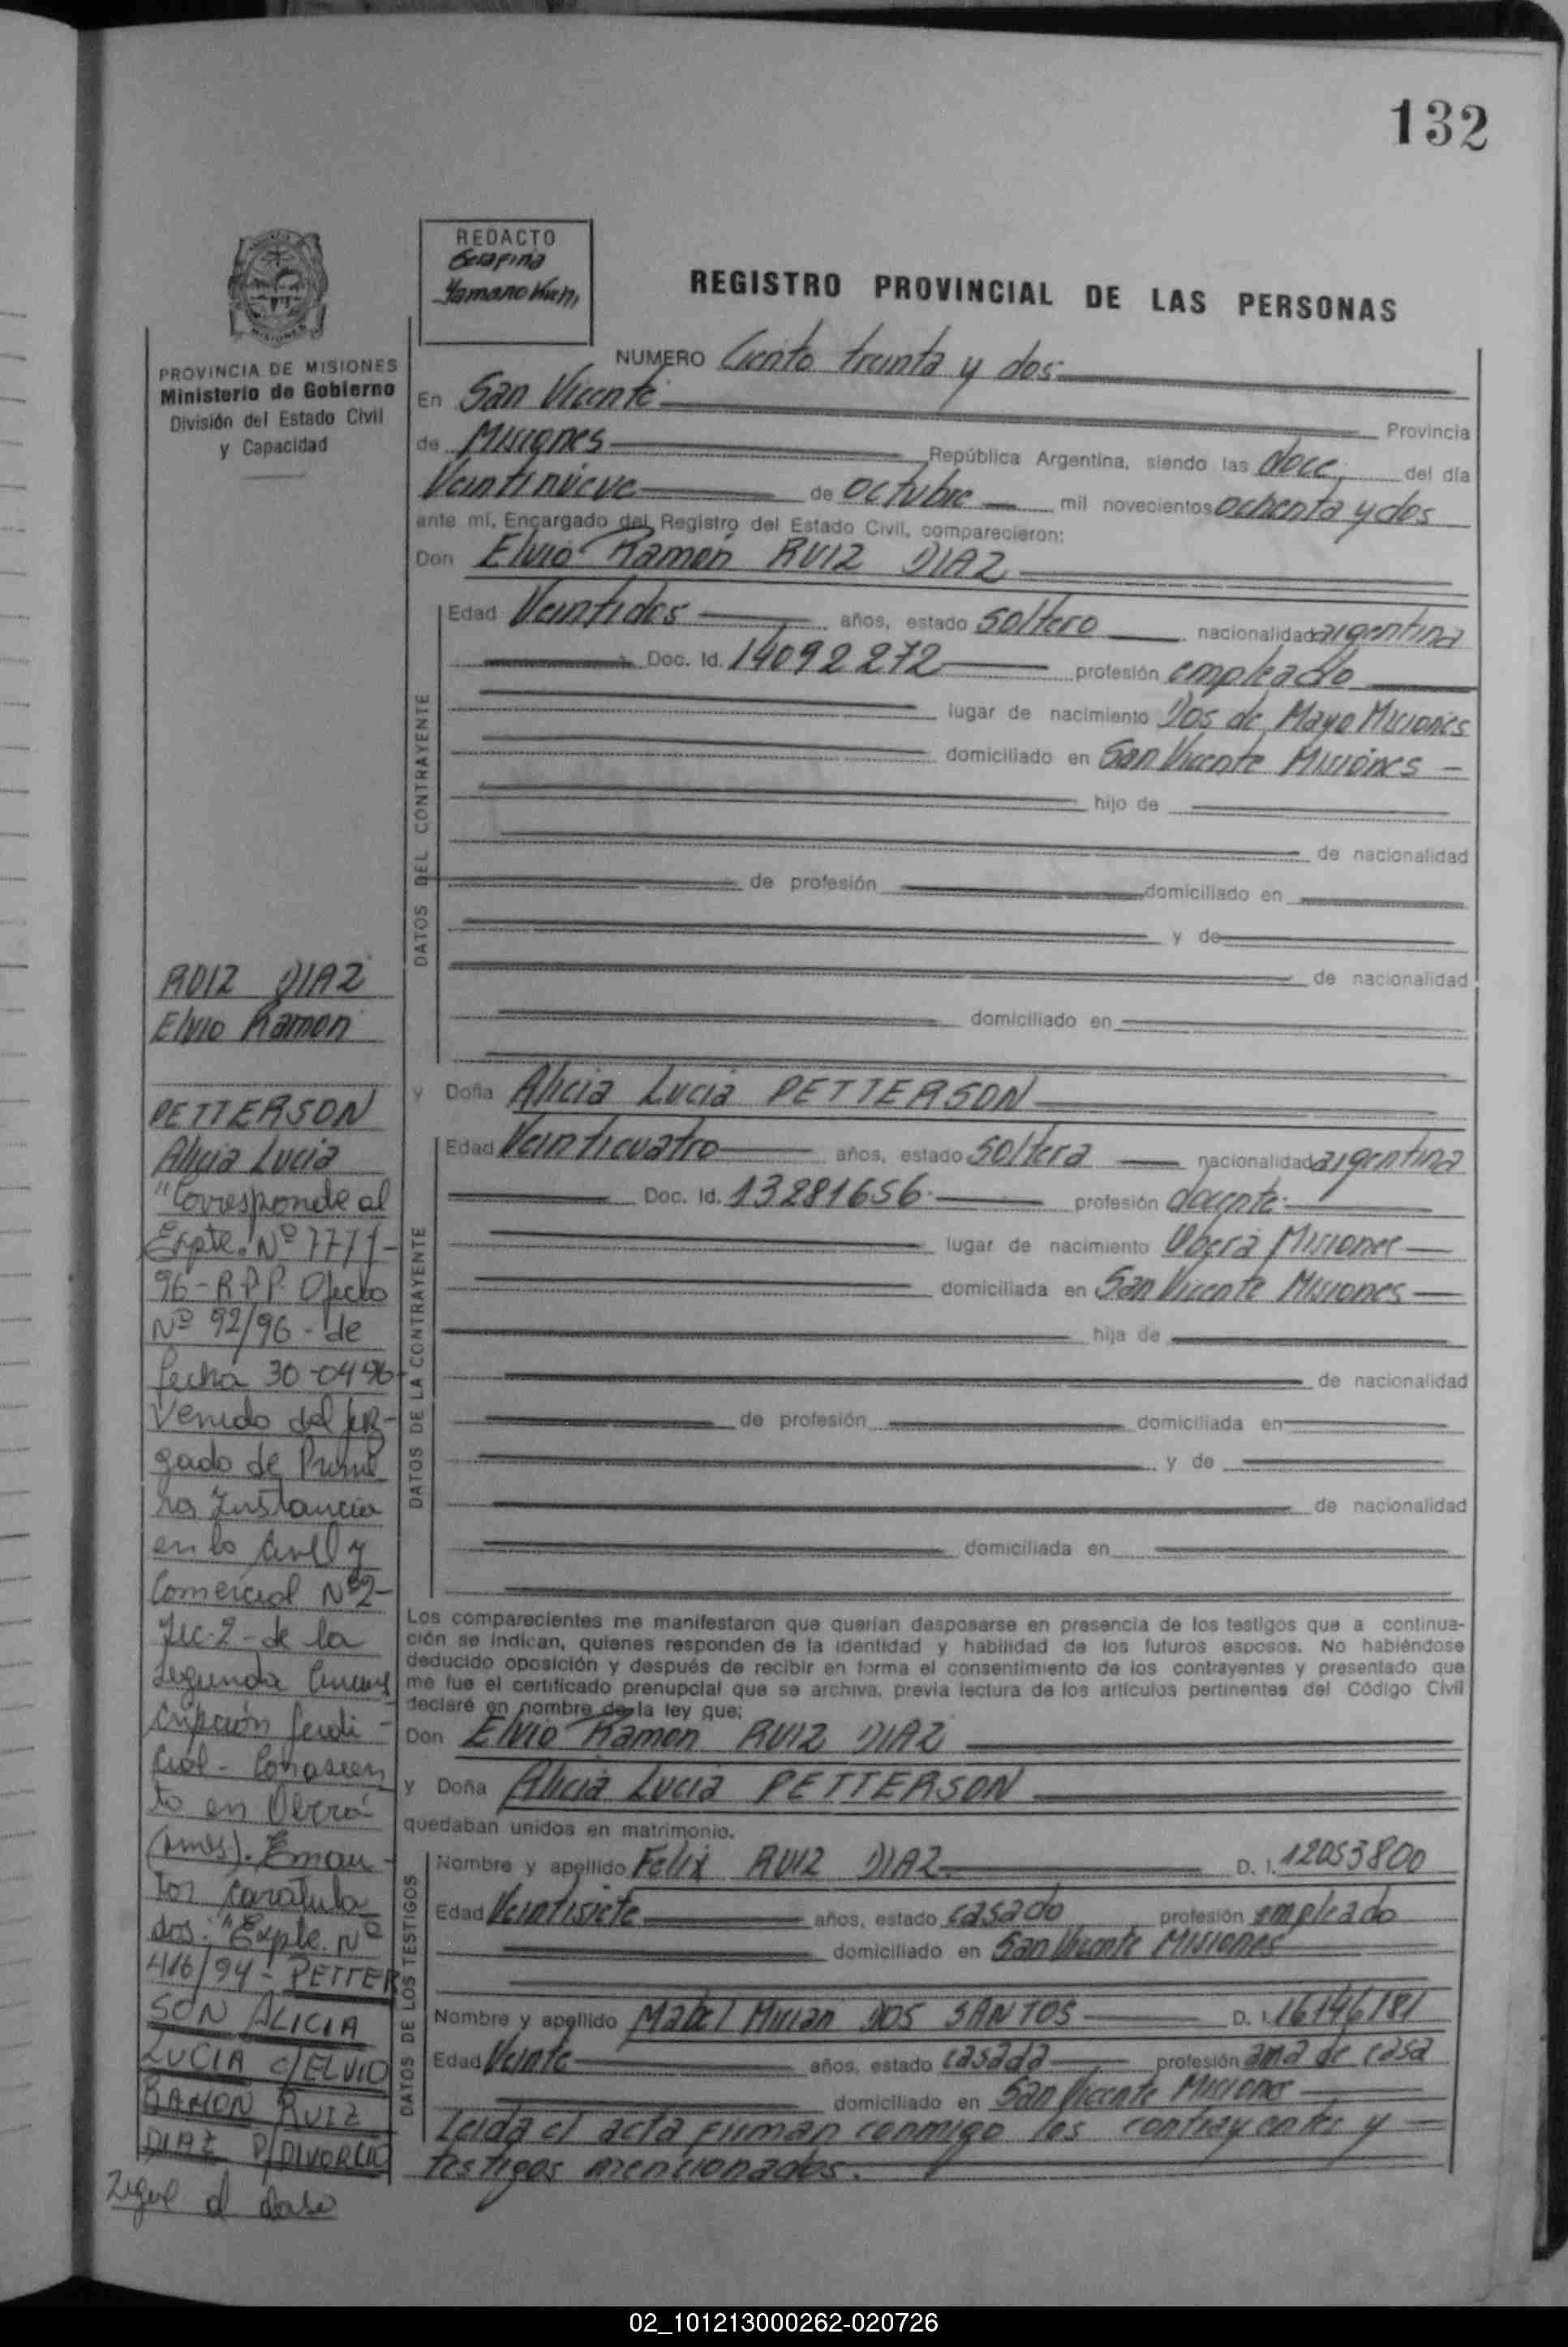 132
REDACTO
Serafina
REGISTRO PROVINCIAL DE LAS PERSONAS
PROVINCIA DE MISIONES
Ministerio de Gobierno
División del Estado Civil
y Capacidad
NUMERO Ciento treinta y dos
En San Vicente
Provincia
de Misiones República Argentina, siendo las doce del día
Veintinueve de octubre mil novecientos ochenta y dos
ante mí, Encargado del Registro del Estado Civil, comparecieron:
Don Elvio Ramón RUIZ DIAZ
DATOS DEL CONTRAYENTE
Edad Veintidos años, estado soltero nacionalidad argentina
Doc. Id. 14092272 profesión empleado
lugar de nacimiento Dos de Mayo Misiones
domiciliado en San Vicente Misiones
hijo de
de nacionalidad
de profesión domiciliado en
y de
de nacionalidad
domiciliado en
y Doña Alicia Lucia PETTERSON
DATOS DE LA CONTRAYENTE
Edad Veinticuatro años, estado soltera nacionalidad argentina
Doc. Id. 13281656 profesión docente
lugar de nacimiento Oberá Misiones
domiciliada en San Vicente Misiones
hija de
de nacionalidad
de profesión domiciliada en
y de
de nacionalidad
domiciliada en
Los comparecientes me manifestaron que querían desposarse en presencia de los testigos que a continua-
ción se indican, quienes responden de la identidad y habilidad de los futuros esposos. No habiéndose
deducido oposición y después de recibir en forma el consentimiento de los contrayentes y presentado que
me fue el certificado prenupcial que se archiva, previa lectura de los artículos pertinentes del Código Civil
declaré en nombre de la ley que:
Don Elvio Ramon RUIZ DIAZ
y Doña Alicia Lucia PETTERSON
quedaban unidos en matrimonio.
DATOS DE LOS TESTIGOS
Nombre y apellido Felix RUIZ DIAZ D. I. 12053800
Edad Veintisiete años, estado casado profesión empleado
domiciliado en San Vicente Misiones
Nombre y apellido Mabel Mirian DOS SANTOS D. I. 16146181
Edad Veinte años, estado casada profesión ama de casa
domiciliado en San Vicente Misiones
Leida el acta firman conmigo los contrayentes y
testigos mencionados.
RUIZ DIAZ
Elvio Ramon
PETTERSON
Alicia Lucia
"Corresponde al
Expte. Nº
96-R.P.P. Oficio
Nº 92/96 - de
fecha 30-04-96
Venido del Juz-
gado de Prime
ra Instancia
en lo Civil y
Comercial Nº2-
Sec-2-de la
Segunda Circuns
cripción Judi-
cial - Con asien
to en Oberá
(Mnes). En au-
tos caratula
dos: "Expte. Nº
416/94 - PETTER
SON ALICIA
LUCIA c/ELVIO
RAMON RUIZ
DIAZ P/DIVORCIO
Sigue al dorso
02_101213000262-020726